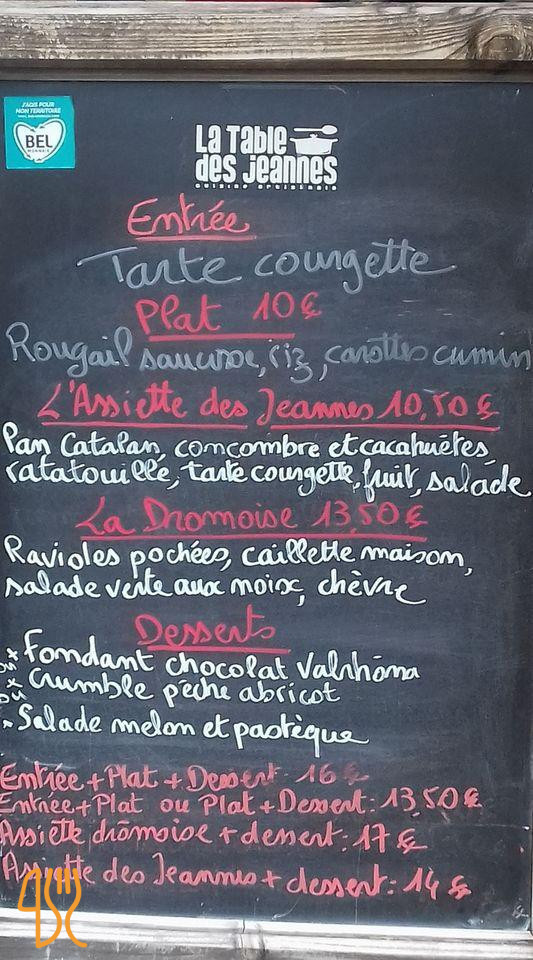 J'AGIS POUR
MON TERRITOIRE
BEL
MONNAIE
La Table
des Jeannes
cuisine artisanale
Entrée
Tarte courgette
Plat 10 €
Rougail saucisse, riz, carottes cumin
L'Assiette des Jeannes 10,50 €
Pan Catalan, concombre et cacahuètes,
ratatouille, tarte courgette, fruit, salade
La Dromoise 13,50 €
Ravioles pochées, caillette maison,
salade verte aux noix, chèvre
Desserts
* Fondant chocolat Valrhôna
ou
* Crumble pêche abricot
ou
* Salade melon et pastèque
Entrée + Plat + Dessert : 16 €
Entrée + Plat ou Plat + Dessert : 13,50 €
Assiette drômoise + dessert : 17 €
Assiette des Jeannes + dessert : 14 €